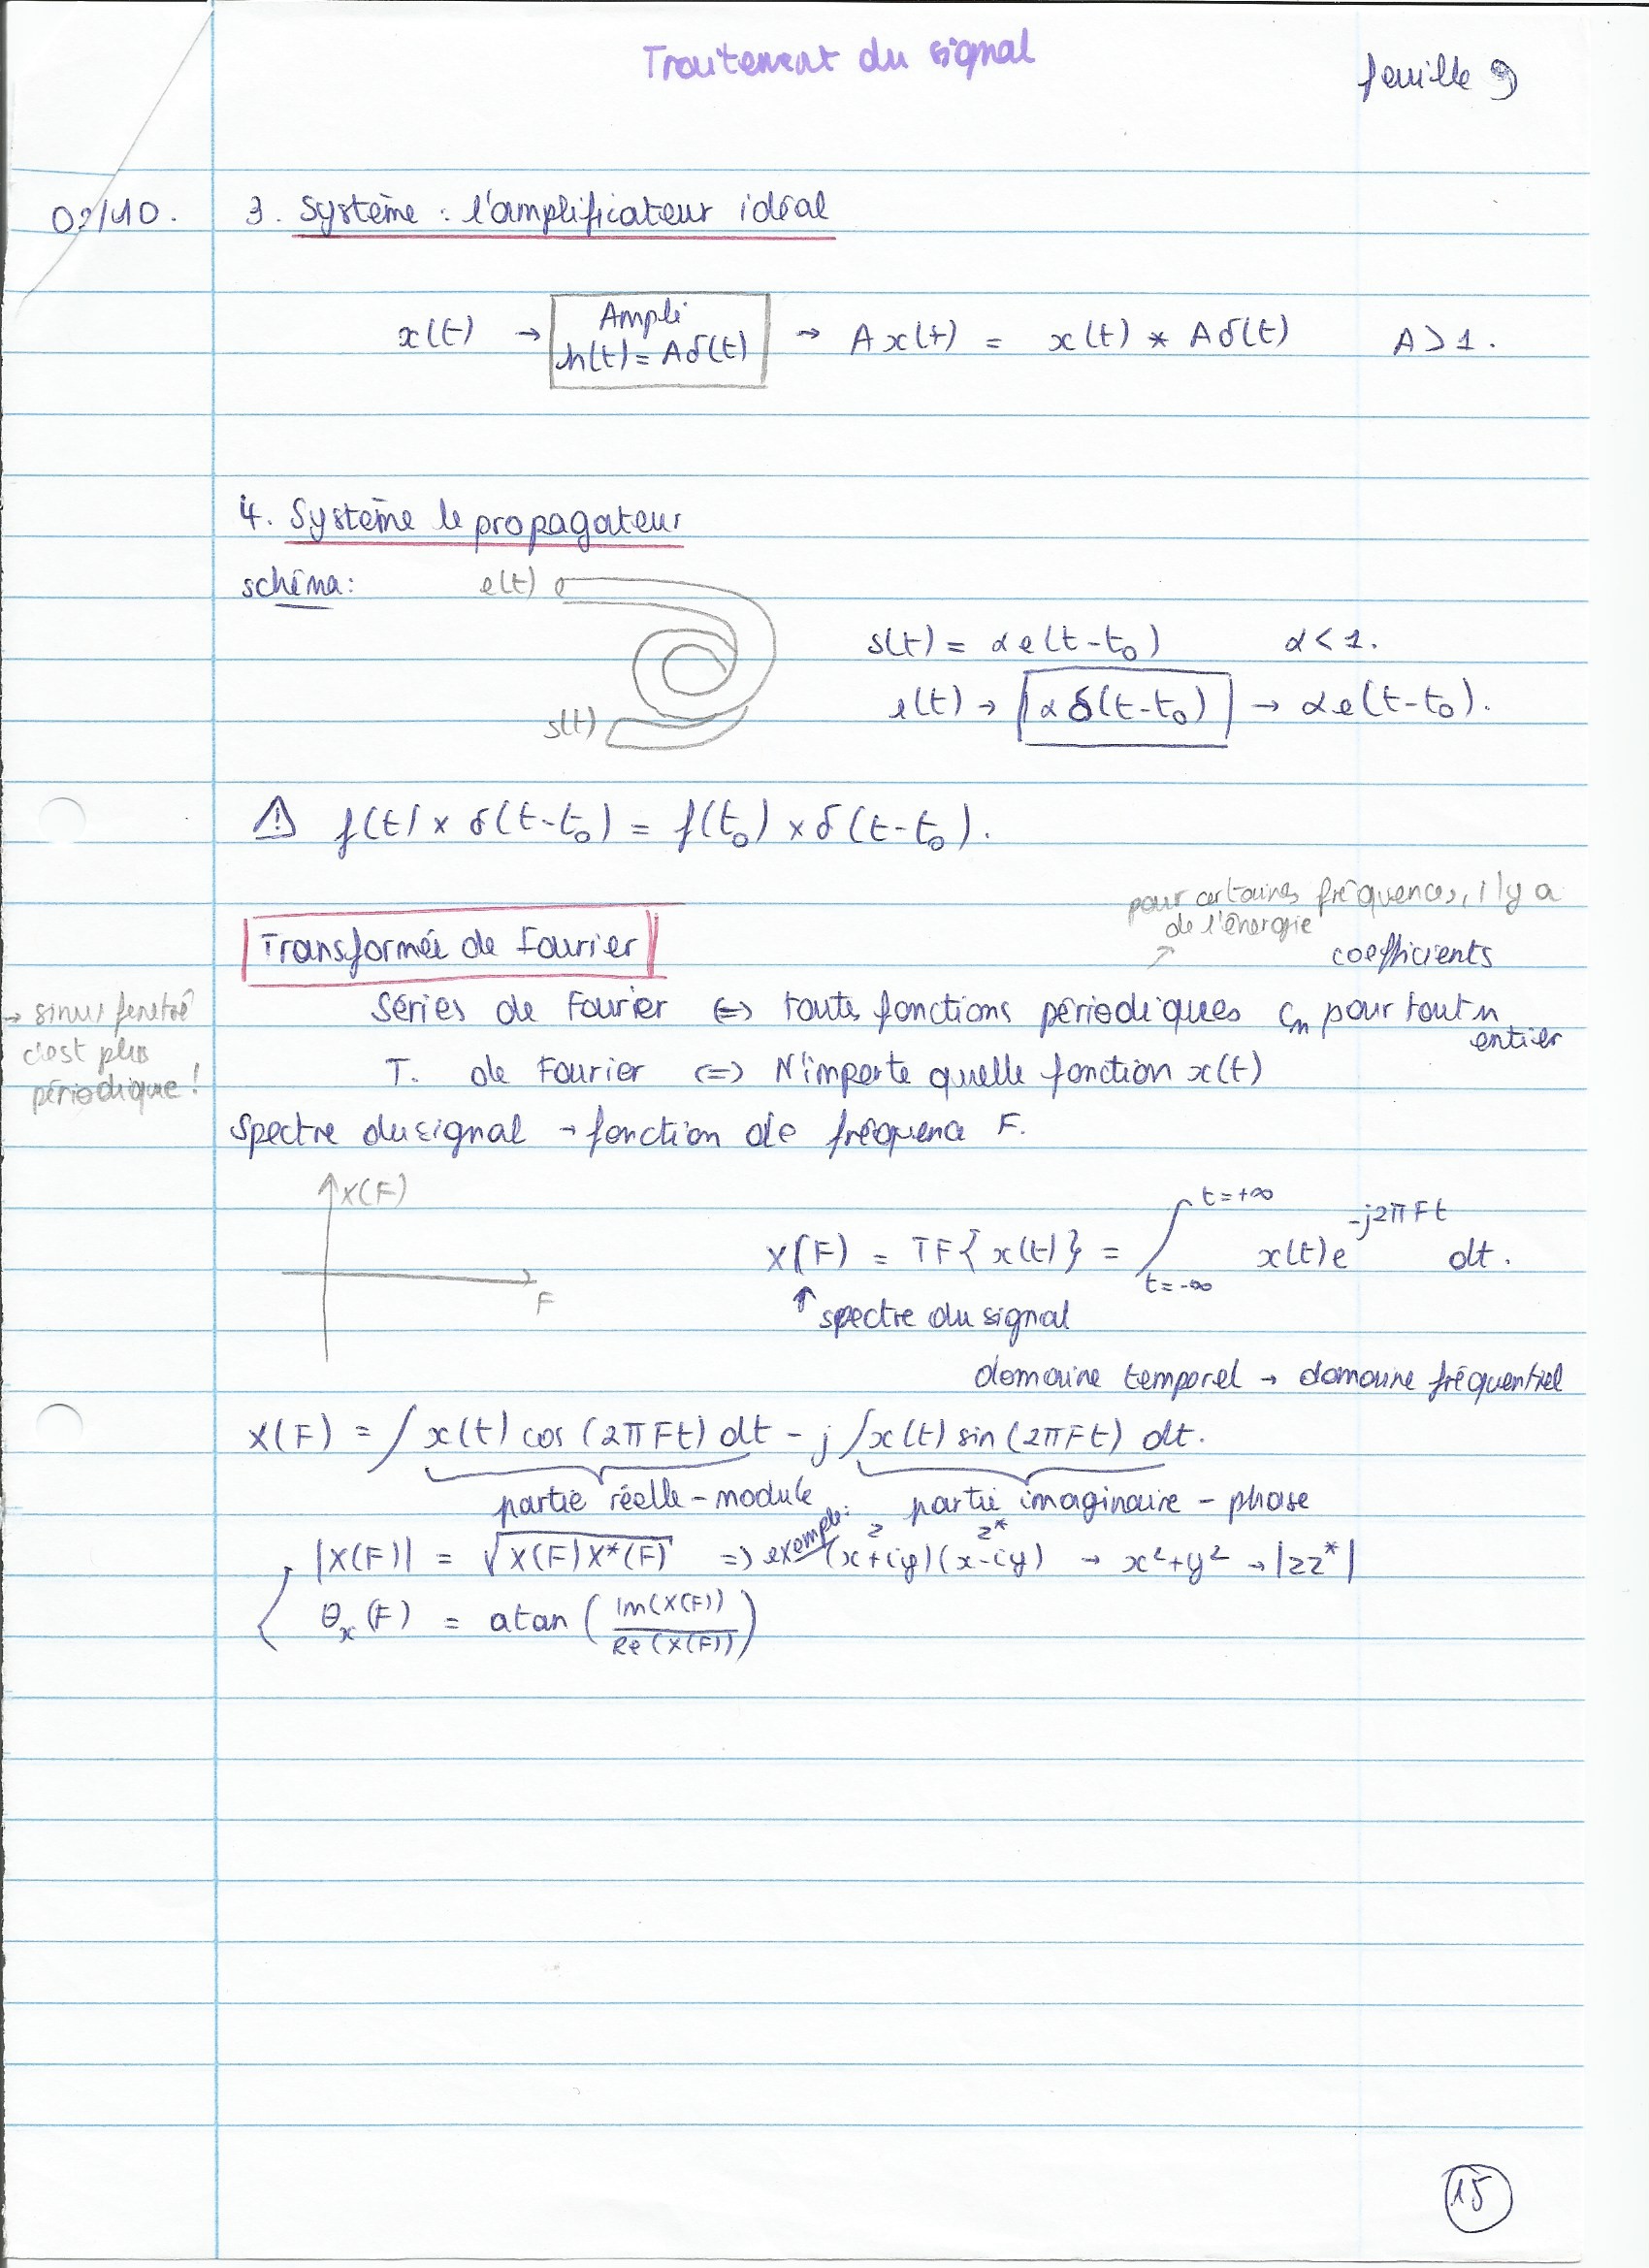 Traitement du signal
feuille 9
02/10.
3. Système : l'amplificateur idéal
x(t) → Ampli h(t) = Aδ(t) → A x(t) = x(t) * Aδ(t) A > 1.
4. Système le propagateur
schéma:
e(t)
s(t)
s(t) = α e(t-t₀) α < 1.
e(t) → α δ(t-t₀) → α e(t-t₀).
⚠ f(t) × δ(t-t₀) = f(t₀) × δ(t-t₀).
pour certaines fréquences, il y a
de l'énergie
Transformée de Fourier
coefficients
Séries de Fourier <=> toutes fonctions périodiques cₙ pour tout n
entier
→ sinus fenêtré
c'est plus
périodique !
T. de Fourier <=> N'importe quelle fonction x(t)
Spectre du signal → fonction de fréquence F.
X(F)
F
X(F) = TF{x(t)} = ∫ t=-∞ t=+∞ x(t) e^(-j2πFt) dt.
↑ spectre du signal
domaine temporel → domaine fréquentiel
X(F) = ∫ x(t) cos (2πFt) dt - j ∫ x(t) sin (2πFt) dt.
partie réelle - module
partie imaginaire - phase
|X(F)| = √X(F)X*(F) => exemple: z (x+iy) z* (x-iy) → x²+y² → |zz*|
θₓ(F) = atan (Im(X(F)) / Re(X(F)))
15